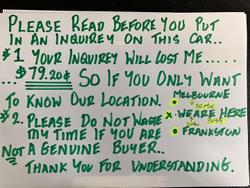 PLEASE READ BEFORE YOU PUT
IN AN INQUIREY ON THIS CAR..
#1 YOUR INQUIREY WILL COST ME.....
... $79.20¢ ... SO IF YOU ONLY WANT
TO KNOW OUR LOCATION.
MELBOURNE
#2. PLEASE DO NOT WASTE
WE ARE HERE
MY TIME IF YOU ARE
FRANKSTON
NOT A GENUINE BUYER..
THANK YOU FOR UNDERSTANDING.